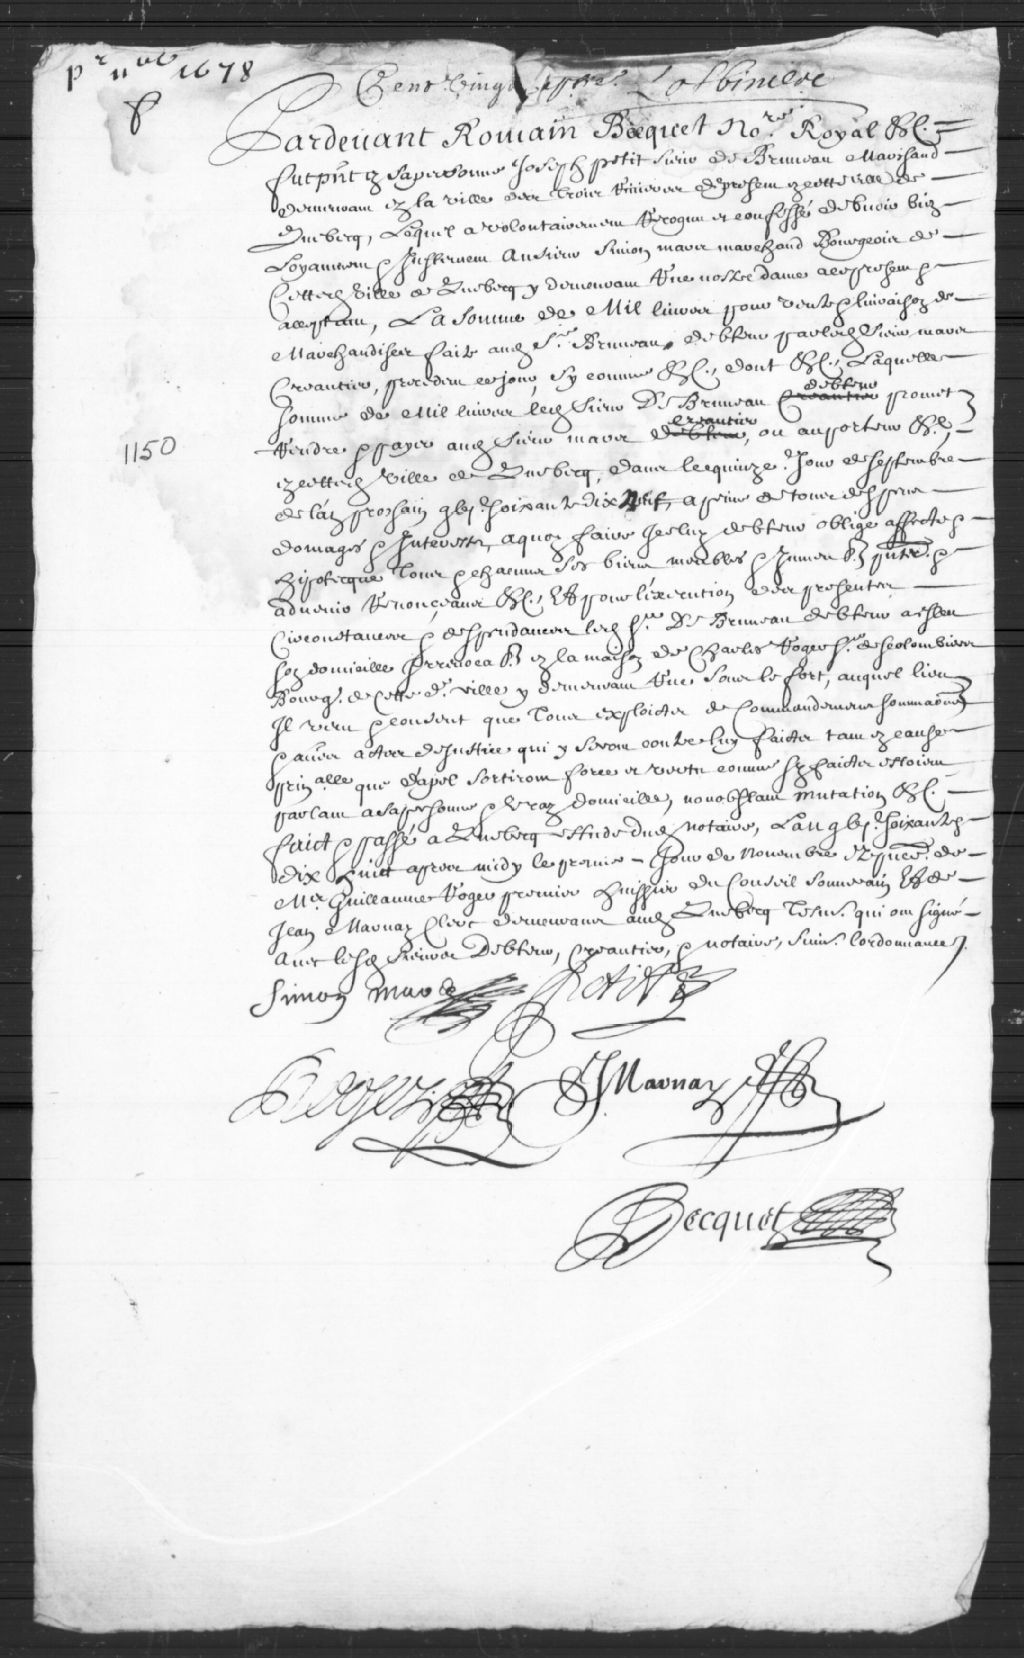 Pr 9bre 1678
Cent Vingt Lotbiniere
Pardeuant Romain Becquet No.re Royal &c.
fut pñt en sa personne Joseph petit sieur de Bruneau Marchand
demeurant en la ville des trois Riuieres de present en cette ville de
Quebecq, Lequel a volontairement Recognu et confessé debuoir bien
Loyaument & Justement Au sieur Simon marer marchand Bourgeois de
Cette d. Ville de Quebecq y demeurant Rue nostre dame a ce present &
acceptant, La somme de Mil liures pour vente & liuraison de
Marchandises faite aud. Sr. Bruneau debteur par led. sieur marer
Creantier, precedent ce jour, sy comme &c., dont &c., Laquelle
somme de Mil liures led. sieur De Bruneau Creantier debteur promet
1150
Rendre & payer aud. sieur marer debteur creantier, ou au porteur &c.,
en cette d. Ville de Quebecq, dans le quinze.e Jour de septembre
de l'an prochain gbj.c soixante dix Neuf, a peine de tous despens
domages & Interests, a quoy faire Iceluy debteur oblige affecte &
hipotecque tous & chacuns ses biens meubles & Immeubl. pñts. &
aduenir Renonceans &c., Et pour l'execution des presentes
Circonstances & despendances led. sr. De Bruneau debteur a esleu
son domicille Irreuocabl. en la maison de Charles Roger sr. des colombiers
Bourg. de Cette d. ville y demeurant Rue sous le fort, auquel lieu
Il veut & consent que tous exploictes de Commandemens sommaõns
& autres actes de Justice qui y seront contre luy faictes tant en cause
prin.alle que d'apel sortiront force et vertu comme sy faictes estoient
parlant a sa personne & vray domicille, nonobstant mutation &c.
faict & passé a Quebecq estude dud. notaire, L'an gbj.c soixante &
dix huict apres midy le premier Jour de Nouembre en pñce. de
Me. Guillaume Roger premier huissier du Conseil Souuerain Et de
Jean Marnay Clerc demeurans aud. Quebecq tesm. qui ont signé
Auec lesd. sieurs Debteur, Creantier, & notaire, suiu. l'ordonnance.
Simon mare
Petit
Roger
J Marnay
Becquet